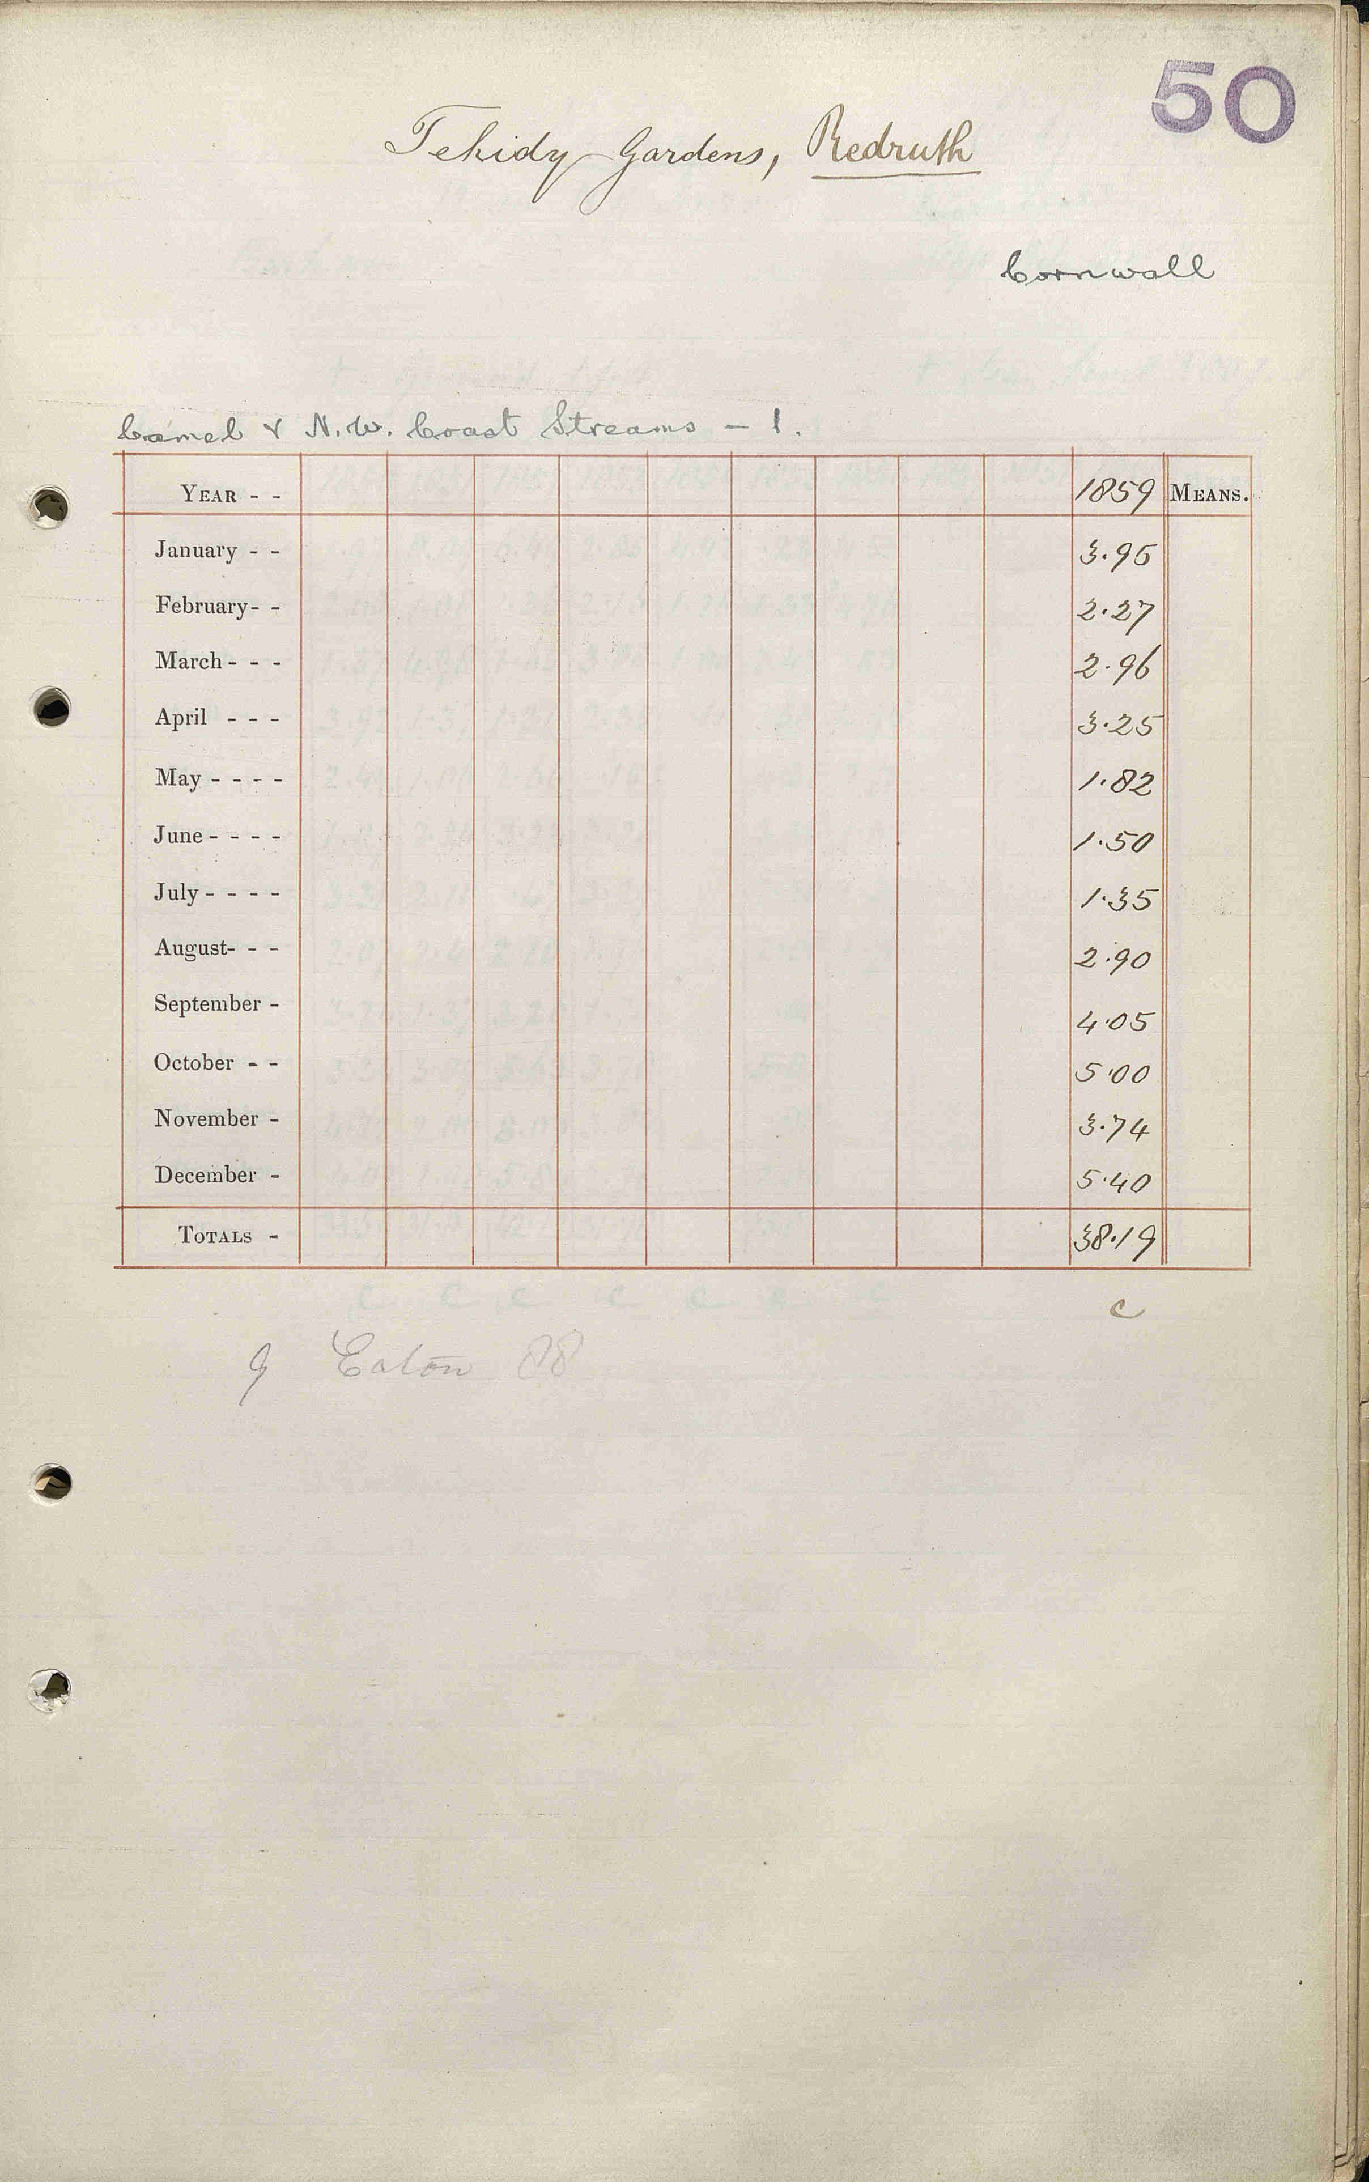 50
Tehidy Gardens, Redruth
Cornwall
Camel & N.W. Coast Streams – 1.
YEAR - - 1859 MEANS.
January - - 3.95
February - - 2.27
March - - - 2.96
April - - - 3.25
May - - - - 1.82
June - - - - 1.50
July - - - - 1.35
August - - - 2.90
September - 4.05
October - - 5.00
November - 3.74
December - 5.40
TOTALS - 38.19
c
Eaton 88